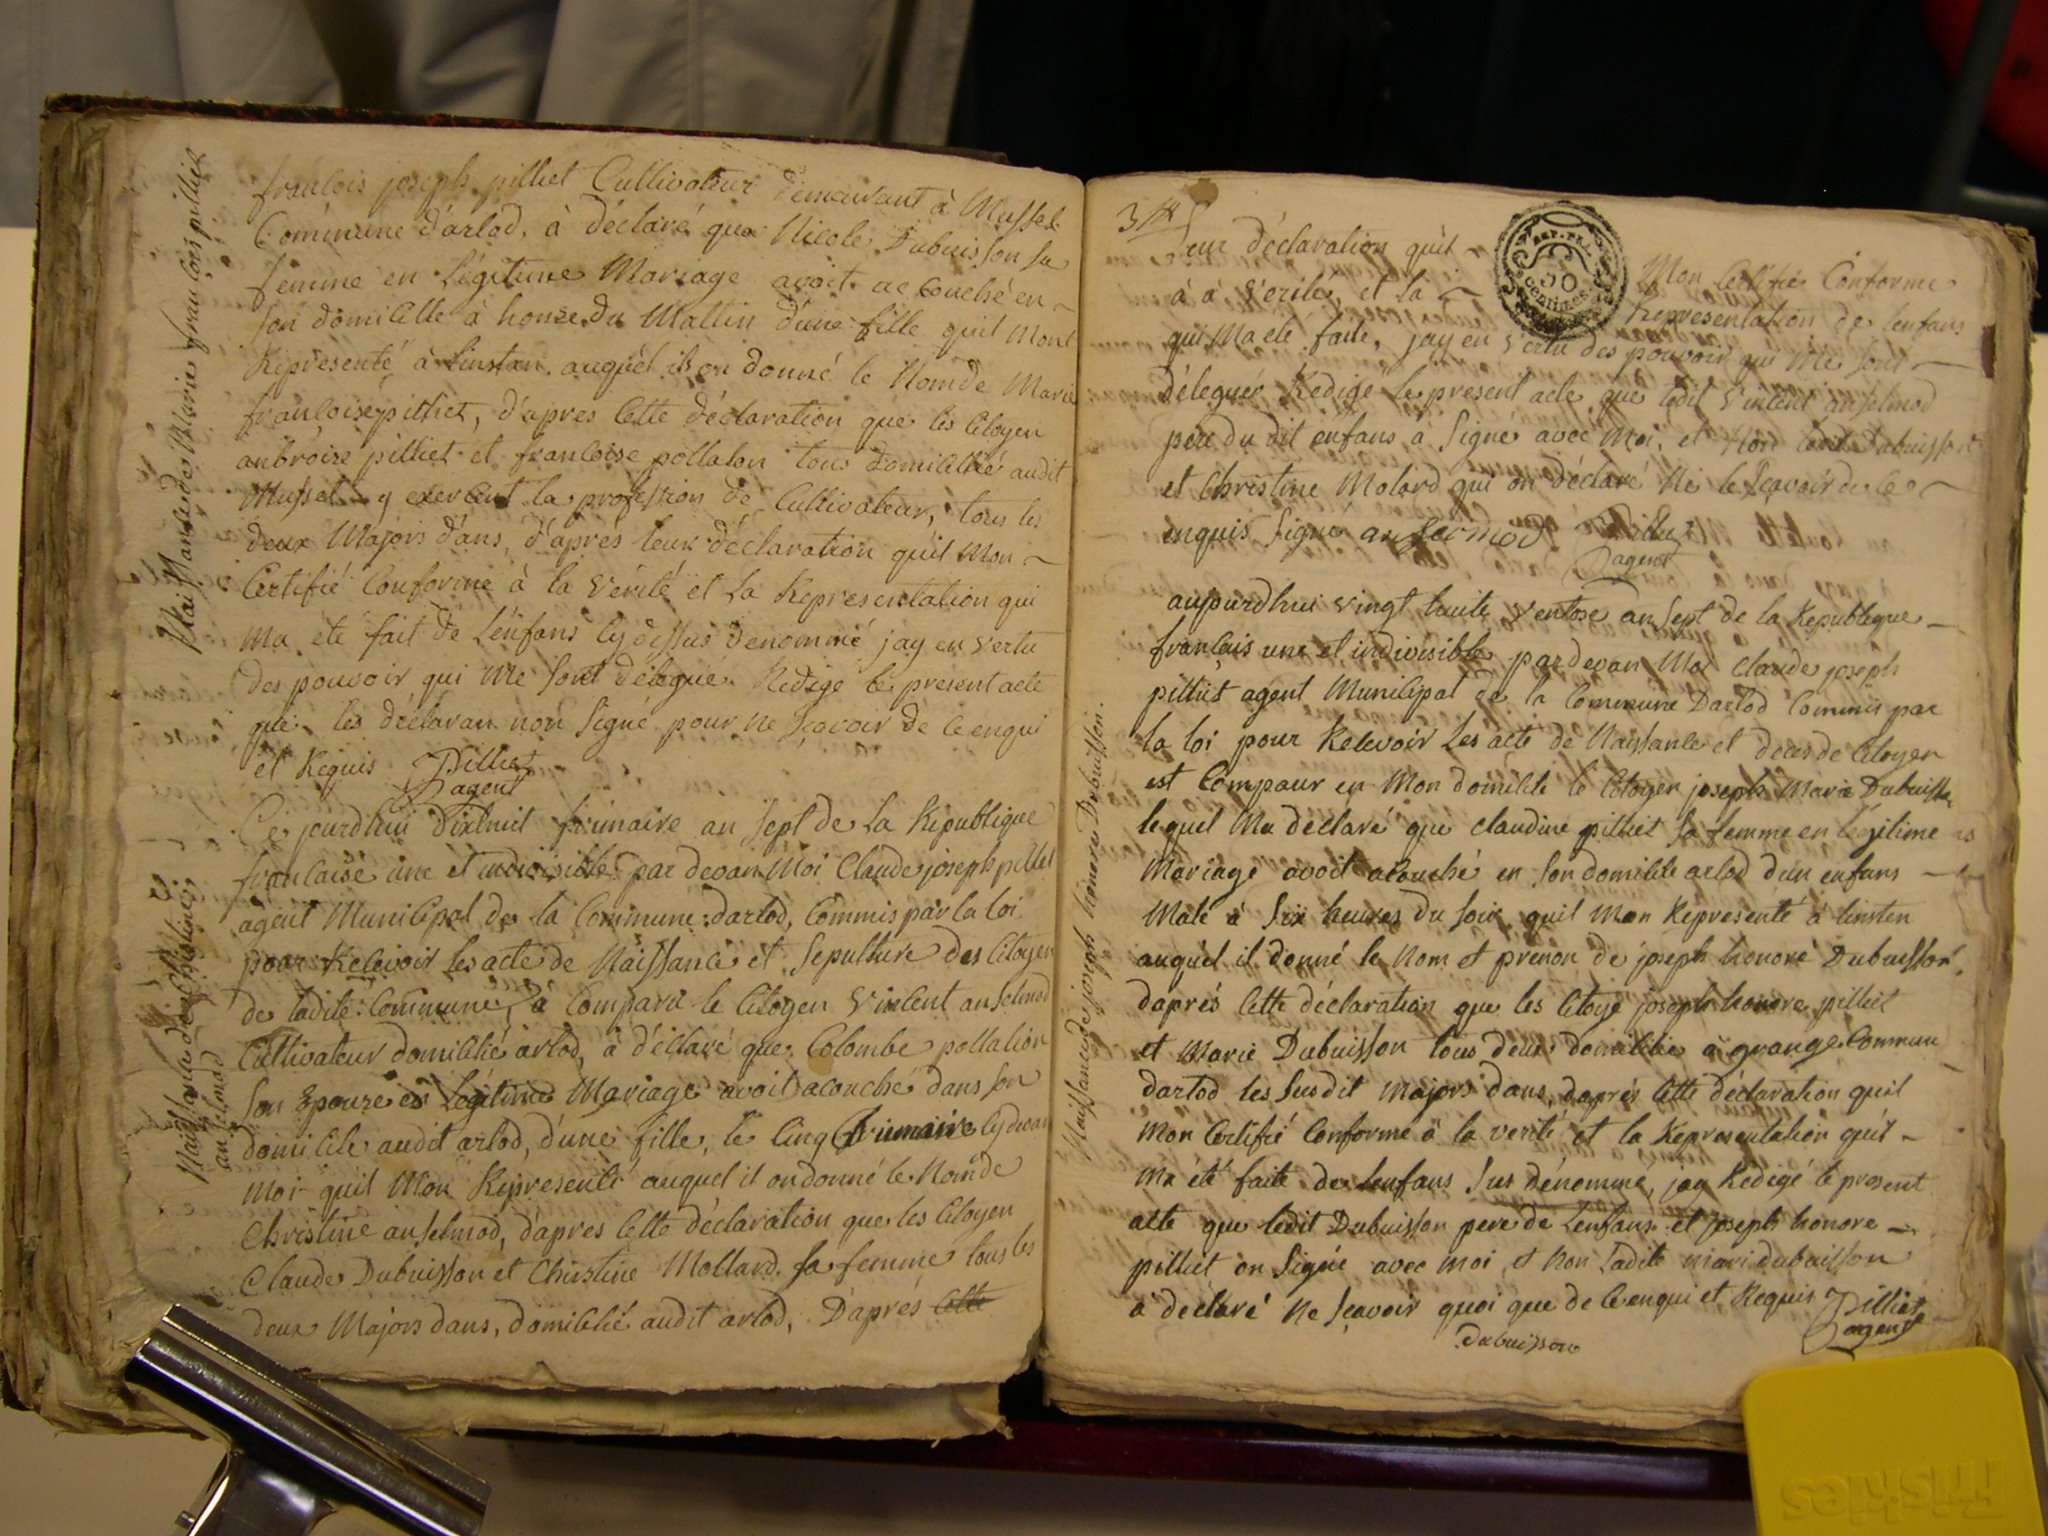 Naissance de Marie françois pilliet
françois joseph pilliet Cultivateur demeurant à Mussel
Commune d'arlod, à déclaré que Nicole Dubuisson sa
femme en Légitime Mariage avoit acouché en
son domicille à honze du Mattin d'une fille quil Mont
Representé à linstan auquel ils on donné le Nom de Marie
françoise pilliet, d'apres Cette déclaration que les Citoyen
anbroize pilliet et francoise pollalon tous domicillié audit
Mussel y exercent la profession de Cultivateur, tous les
deux Majors d'ans, d'aprés leur déclaration quil Mon
Certifié Conforme à la vérité et La Representation qui
Ma été fait de Lenfans Cy dessus denommé jay en vertu
des pouvoir qui Me sont délegué Redigé le present acte
que les déclaran non Signé pour ne sçavoir de ce enqui
et Requis Pilliet
agent
Naissance de Christine
anselmod
Ce jourdhui dixhuit frimaire an sept de La Republique
francaise une et indivisible par devan Moi Claude joseph pilliet
agent Municipal de la Commune darlod, Commis par la loi
pour Recevoir Les acte de Naissance et Sepulture des Citoyen
de ladite Commune, à Comparu le Citoyen Vincent anselmod
Cultivateur domicilié arlod, à déclaré que Colombe pollalion
son Epouze en Légitime Mariage avoit acouché dans son
domicile audit arlod, d'une fille, le Cinq frimaire Cy devan
Moi quil Mon Representé auquel il on donné le Nom de
Christine anselmod, d'apres Cette déclaration que les Citoyen
Claude Dubuisson et Christine Mollard sa femme tous les
deux Majors dans, domicilié audit arlod, D'aprés Cette
3
REP. FRA.
50
centimes
Leur déclaration quil Mon Certifié Conforme
à à verité, et La Representation de lenfans
qui Ma eté faite, jay en vertu des pouvoir qui Me sont
délegués Redigé le present acte que ledit Vincent anselmod
pere du dit enfans à Signé avec Moi, et Non ledit Dubuisson
et Christine Molard qui on déclaré Ne le Sçavoir de ce
enquis Signé anselmod Pilliet
agent
Naissance de joseph honoré Dubuisson.
aujourdhui vingt huite ventose an Sept de la Republique
français une et indivisible pardevan Moi Claude joseph
pilliet agent Municipal de la Commune Darlod Commis par
la loi pour Recevoir Les acte de Naissance et deces de Citoyen
est Comparu en Mon domicile le Citoyen joseph Marie Dubuisson
lequel Ma déclaré que claudine pilliet sa femme en Légitime
Mariage avoit acouché en son domicile arlod d'un enfans
Male à Six heures du soir, quil Mon Representé à linsten
auquel il donné le Nom et prenon de joseph honoré Dubuisson,
daprés Cette déclaration que les Citoye joseph honore pilliet
et Marie Dubuisson tous deux domicilié à grange Commun
darlod les Susdit Majors dans, daprés Cette déclaration quil
Mon Certifié Conforme à la verité et la Representation quil
Ma eté faite de lenfans Sus dénommé, jay Redegé le present
acte que ledit Dubuisson pere de Lenfans et joseph honore
pilliet on Signé avec Moi et Non Ladite mari dubuisson
à declaré Ne Sçavoir quoi que de ce enqui et Requis Pilliet
agent
Dubuisson
Friskies